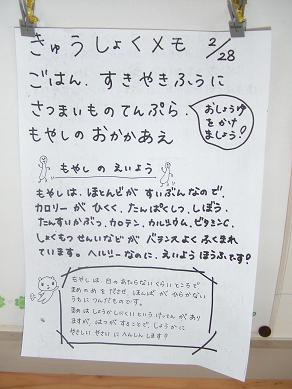 きゅうしょくメモ 2/28
ごはん、すきやきふうに
さつまいものてんぷら、
もやしのおかかあえ
おしょうゆ
をかけ
ましょう!
もやしのえいよう
もやしは、ほとんどが すいぶんなので、
カロリーが ひくく、たんぱくしつ、しぼう、
たんすいかぶつ、カロテン、カルシウム、ビタミンC、
しょくもつせんいなどが バランスよくふくまれ
ています。ヘルシーなのに、えいようほうふです!
もやしは、日のあたらないくらいところで
まめのめを ださせ、ほんばが ひらかない
うちに つんだものです。
まめは しょうかしにくいという けってんが あり
ますが、はつがすることで、しょうかに
やさしい やさいに へんしんします!